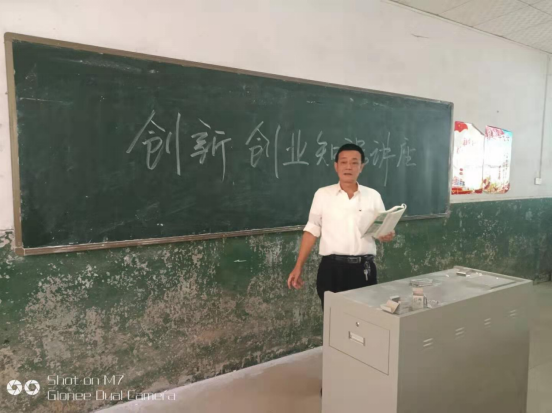 创新 创业知识讲座
Shot on M7
Gionee Dual Camera